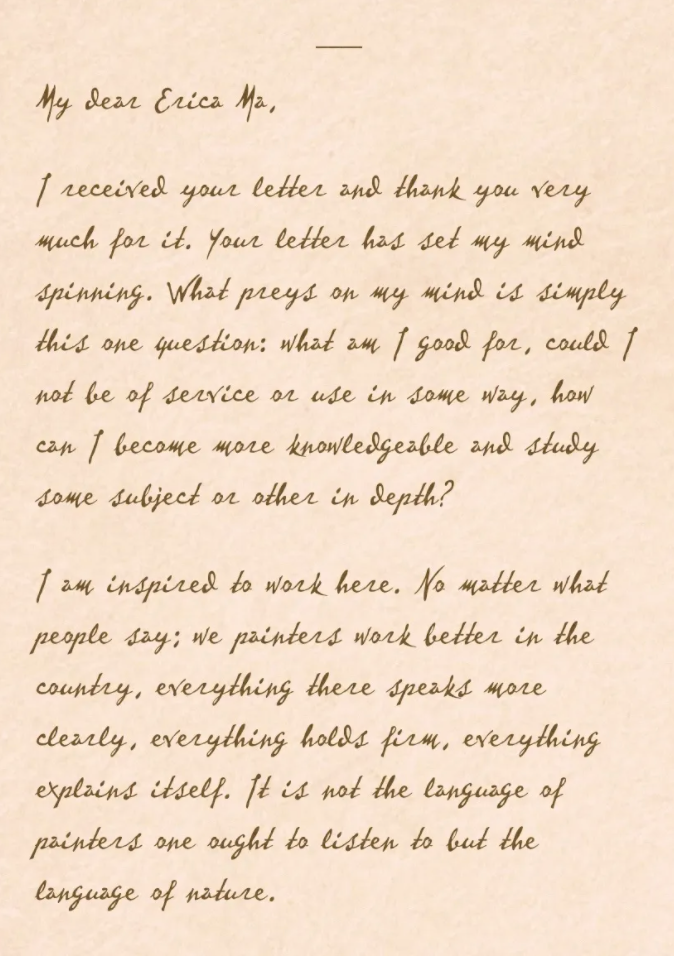 My dear Erica Ma,
I received your letter and thank you very
much for it. Your letter has set my mind
spinning. What preys on my mind is simply
this one question: what am I good for, could I
not be of service or use in some way, how
can I become more knowledgeable and study
some subject or other in depth?
I am inspired to work here. No matter what
people say; we painters work better in the
country, everything there speaks more
clearly, everything holds firm, everything
explains itself. It is not the language of
painters one ought to listen to but the
language of nature.